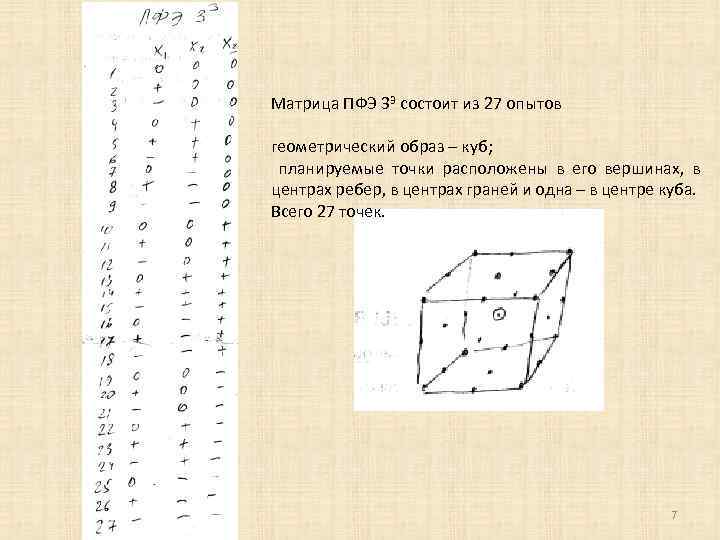 ПФЭ 3³
x₁ x₂ x₂
1 0 0 0
2 + 0 0
3 − 0 0
4 0 + 0
5 + + 0
6 − + 0
7 0 − 0
8 + − 0
9 − − 0
10 0 0 +
11 + 0 +
12 − 0 +
13 0 + +
14 + + +
15 − + +
16 0 − +
17 + − +
18 − − +
19 0 0 −
20 + 0 −
21 − 0 −
22 0 + −
23 + + −
24 − + −
25 0 - −
26 + − −
27 − − −
Матрица ПФЭ 3³ состоит из 27 опытов
геометрический образ – куб;
планируемые точки расположены в его вершинах, в
центрах ребер, в центрах граней и одна – в центре куба.
Всего 27 точек.
7